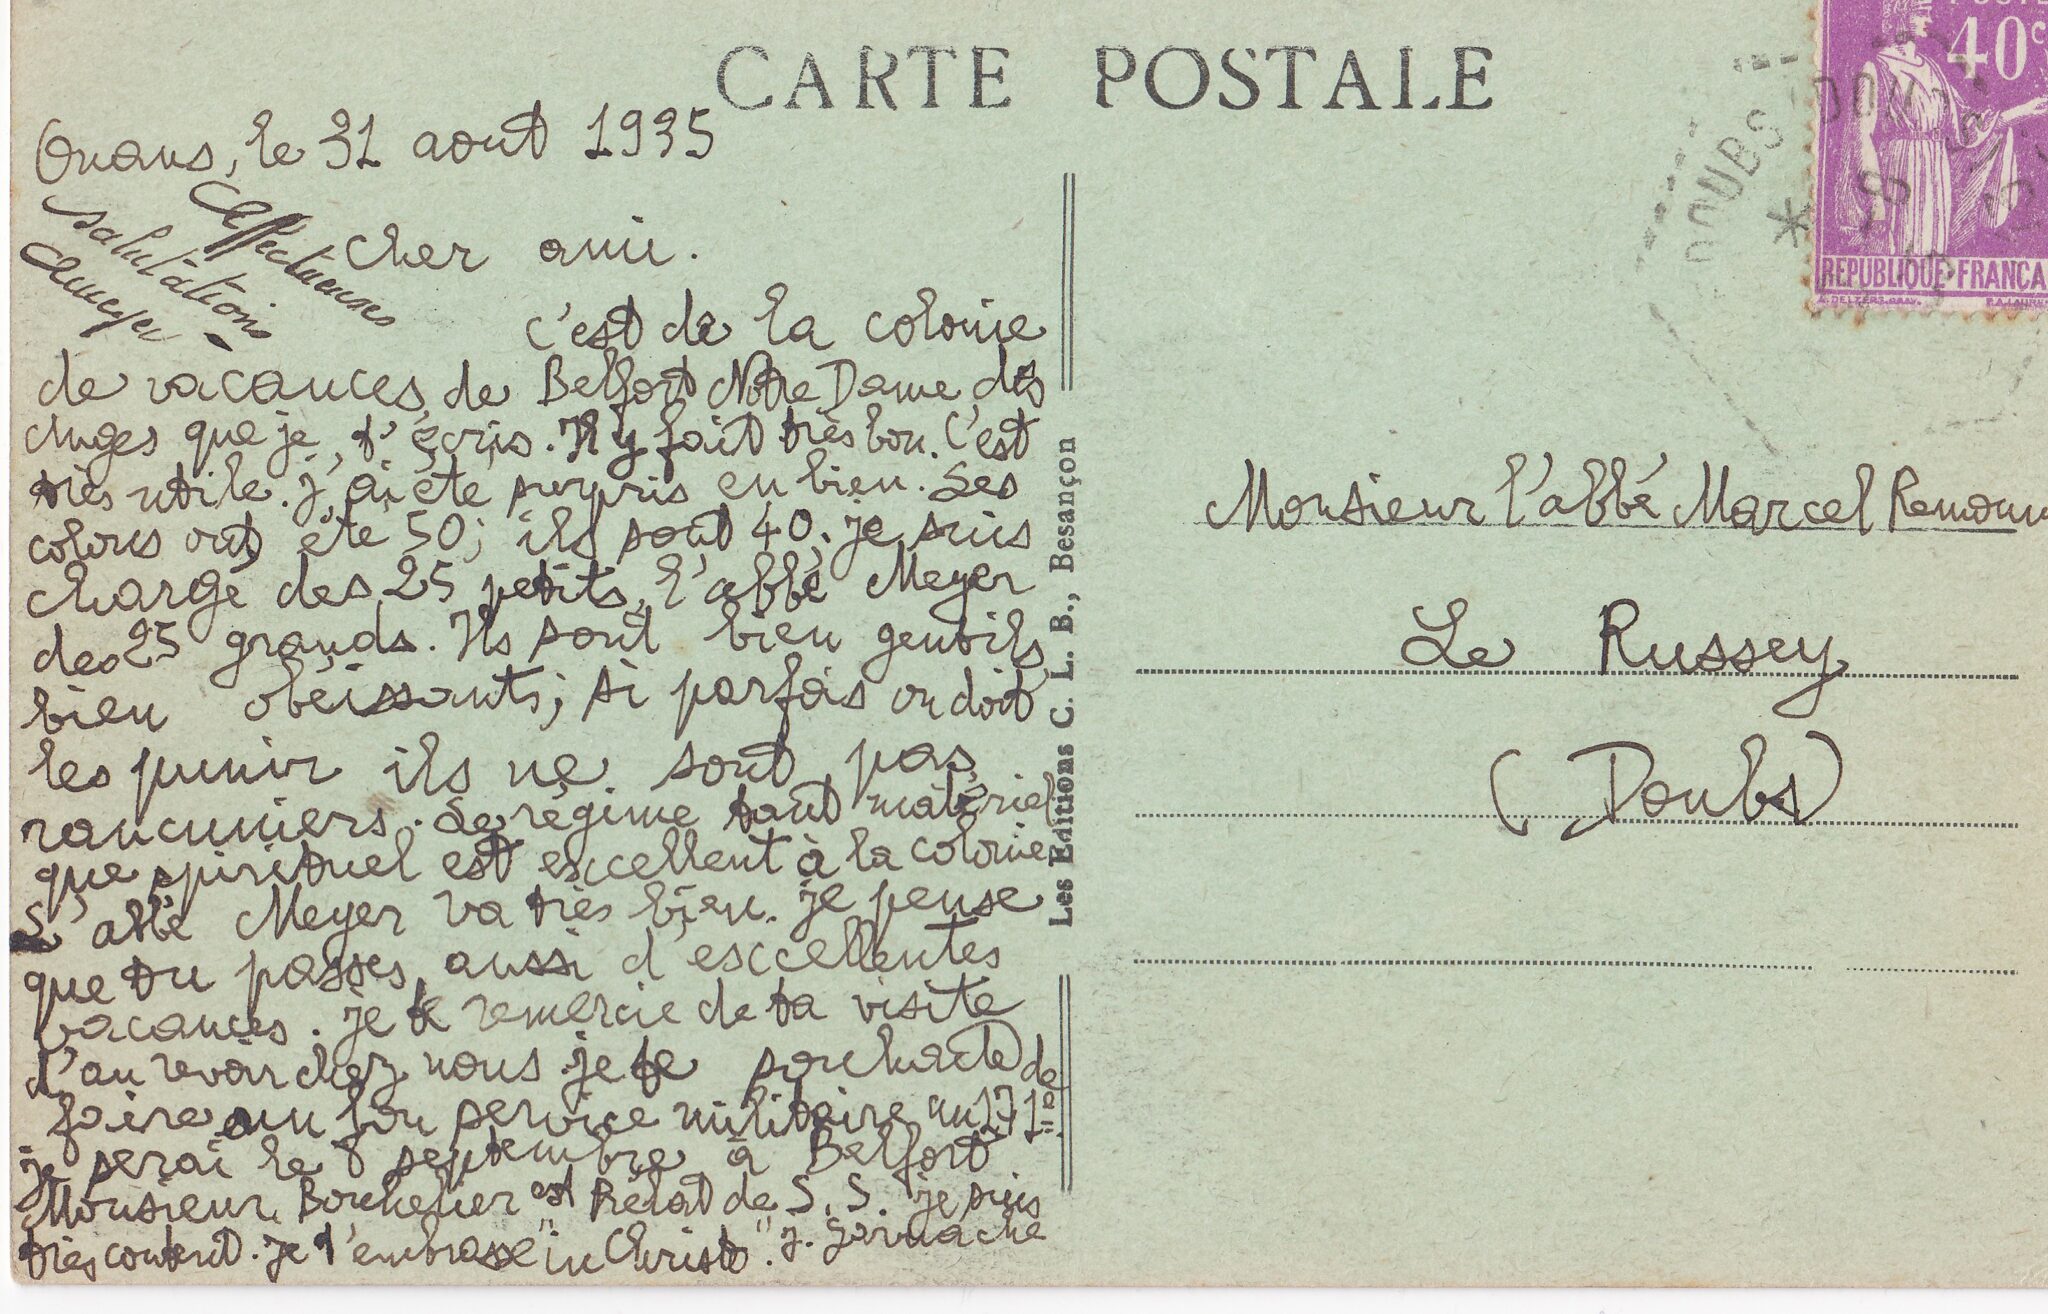 CARTE POSTALE
Onans, le 31 aout 1935
Affectueuses
salutations
AMeyer
Cher ami.
C'est de la colonie
de vacances de Belfort Notre Dame des
Anges que je t'écris. Il y fait très bon. C'est
très utile. J'ai été surpris en bien. Les
colons ont été 50; ils sont 40. je suis
chargé des 25 petits, l'abbé Meyer
des 25 grands. Ils sont bien gentils
bien obéissants; si parfois on doit
les punir ils ne sont pas
rancuniers. Le régime tant matériel
que spirituel est excellent à la colonie
L'abbé Meyer va très bien. je pense
que tu passes aussi d'excellentes
vacances. je te remercie de ta visite
d'au revoir chez nous. je te souhaite de
faire un bon service militaire au 171e.
je serai le 8 septembre à Belfort
Monsieur Bouchelier est Prélat de S. S. je suis
très content. Je t'embrasse "in Christo". J. Garnache
Les Editions C. L. B., Besançon
40c
POSTE
REPUBLIQUE FRANCA
DOUBS DOUBS
Monsieur l'abbé Marcel
Le Russey
(Doubs)